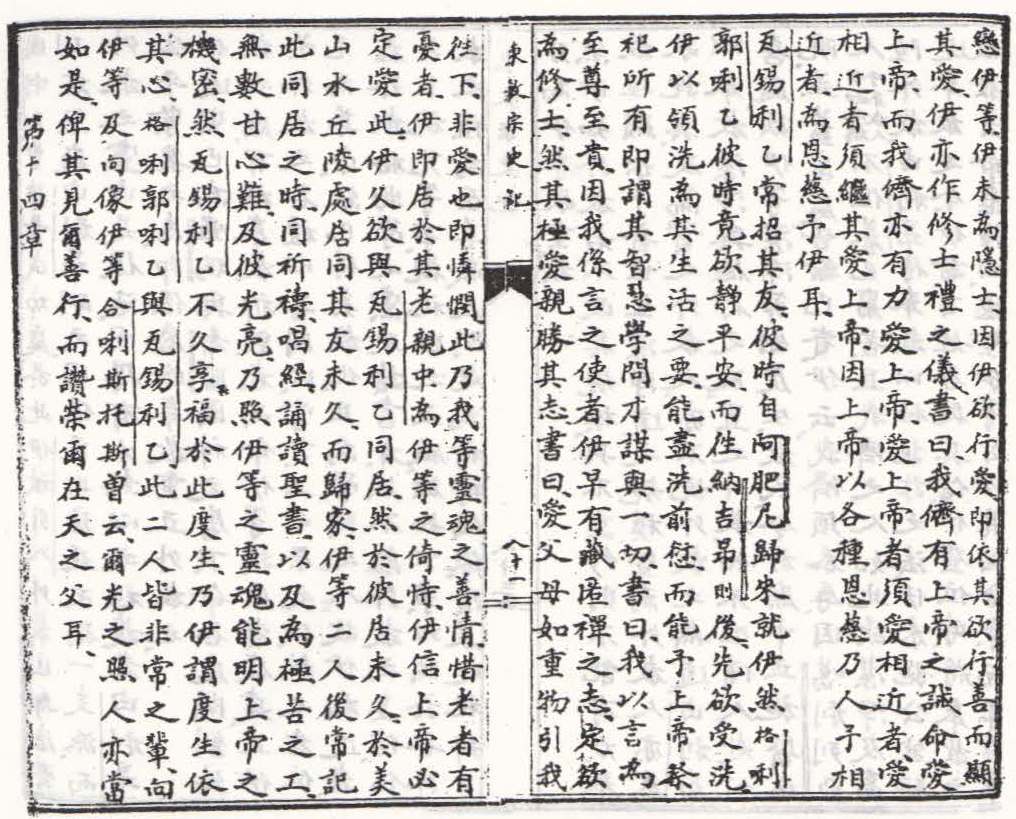 戀伊等、伊未為隱士、因伊欲行愛即依其欲行善而顯
其愛、伊亦作修士禮之儀書曰、我儕有上帝之誡命、愛
上帝、而我儕亦有力、愛上帝、愛上帝者須愛相近者、愛
相近者須繼其愛上帝、因上帝以各種恩慈乃人予相
近者、為恩慈予伊耳、
瓦錫利乙常招其友、彼時自阿肥尼歸來就伊、然格唎
郭唎乙彼時竟欲靜平安、而往納吉昂則後、先欲受洗、
伊以領洗為其生活之要、能盡洗前愆、而能予上帝祭
祀所有、即謂其智慧學問才謀與一切書曰、我以言為
至尊至貴、因我係言之使者、伊早有藏居禪之志、定欲
為修士、然其極愛親勝其志、書曰、愛父母如重物引我
東教宗史記
八十一
往下、非愛也、即憐憫此乃我等靈魂之善情、惜老者有
憂者、伊即居於其老親中、為伊等之倚恃、伊信上帝必
定愛此、伊久欲與瓦錫利乙同居、然於彼居未久、於美
山水丘陵處居同其友未久、而歸家、伊等二人後常記
此同居之時、同祈禱、唱經、誦讀聖書、以及為極苦之工、
無數甘心難、及彼光亮、乃照伊等之靈魂、能明上帝之
機密、然瓦錫利乙不久享福於此度生、乃伊謂度生依
其心、格唎郭唎乙與瓦錫利乙、此二人皆非常之輩、向
伊等及向像伊等合唎斯托斯曾云、爾光之照人亦當
如是、俾其見爾善行、而讚榮爾在天之父耳、
第十四章